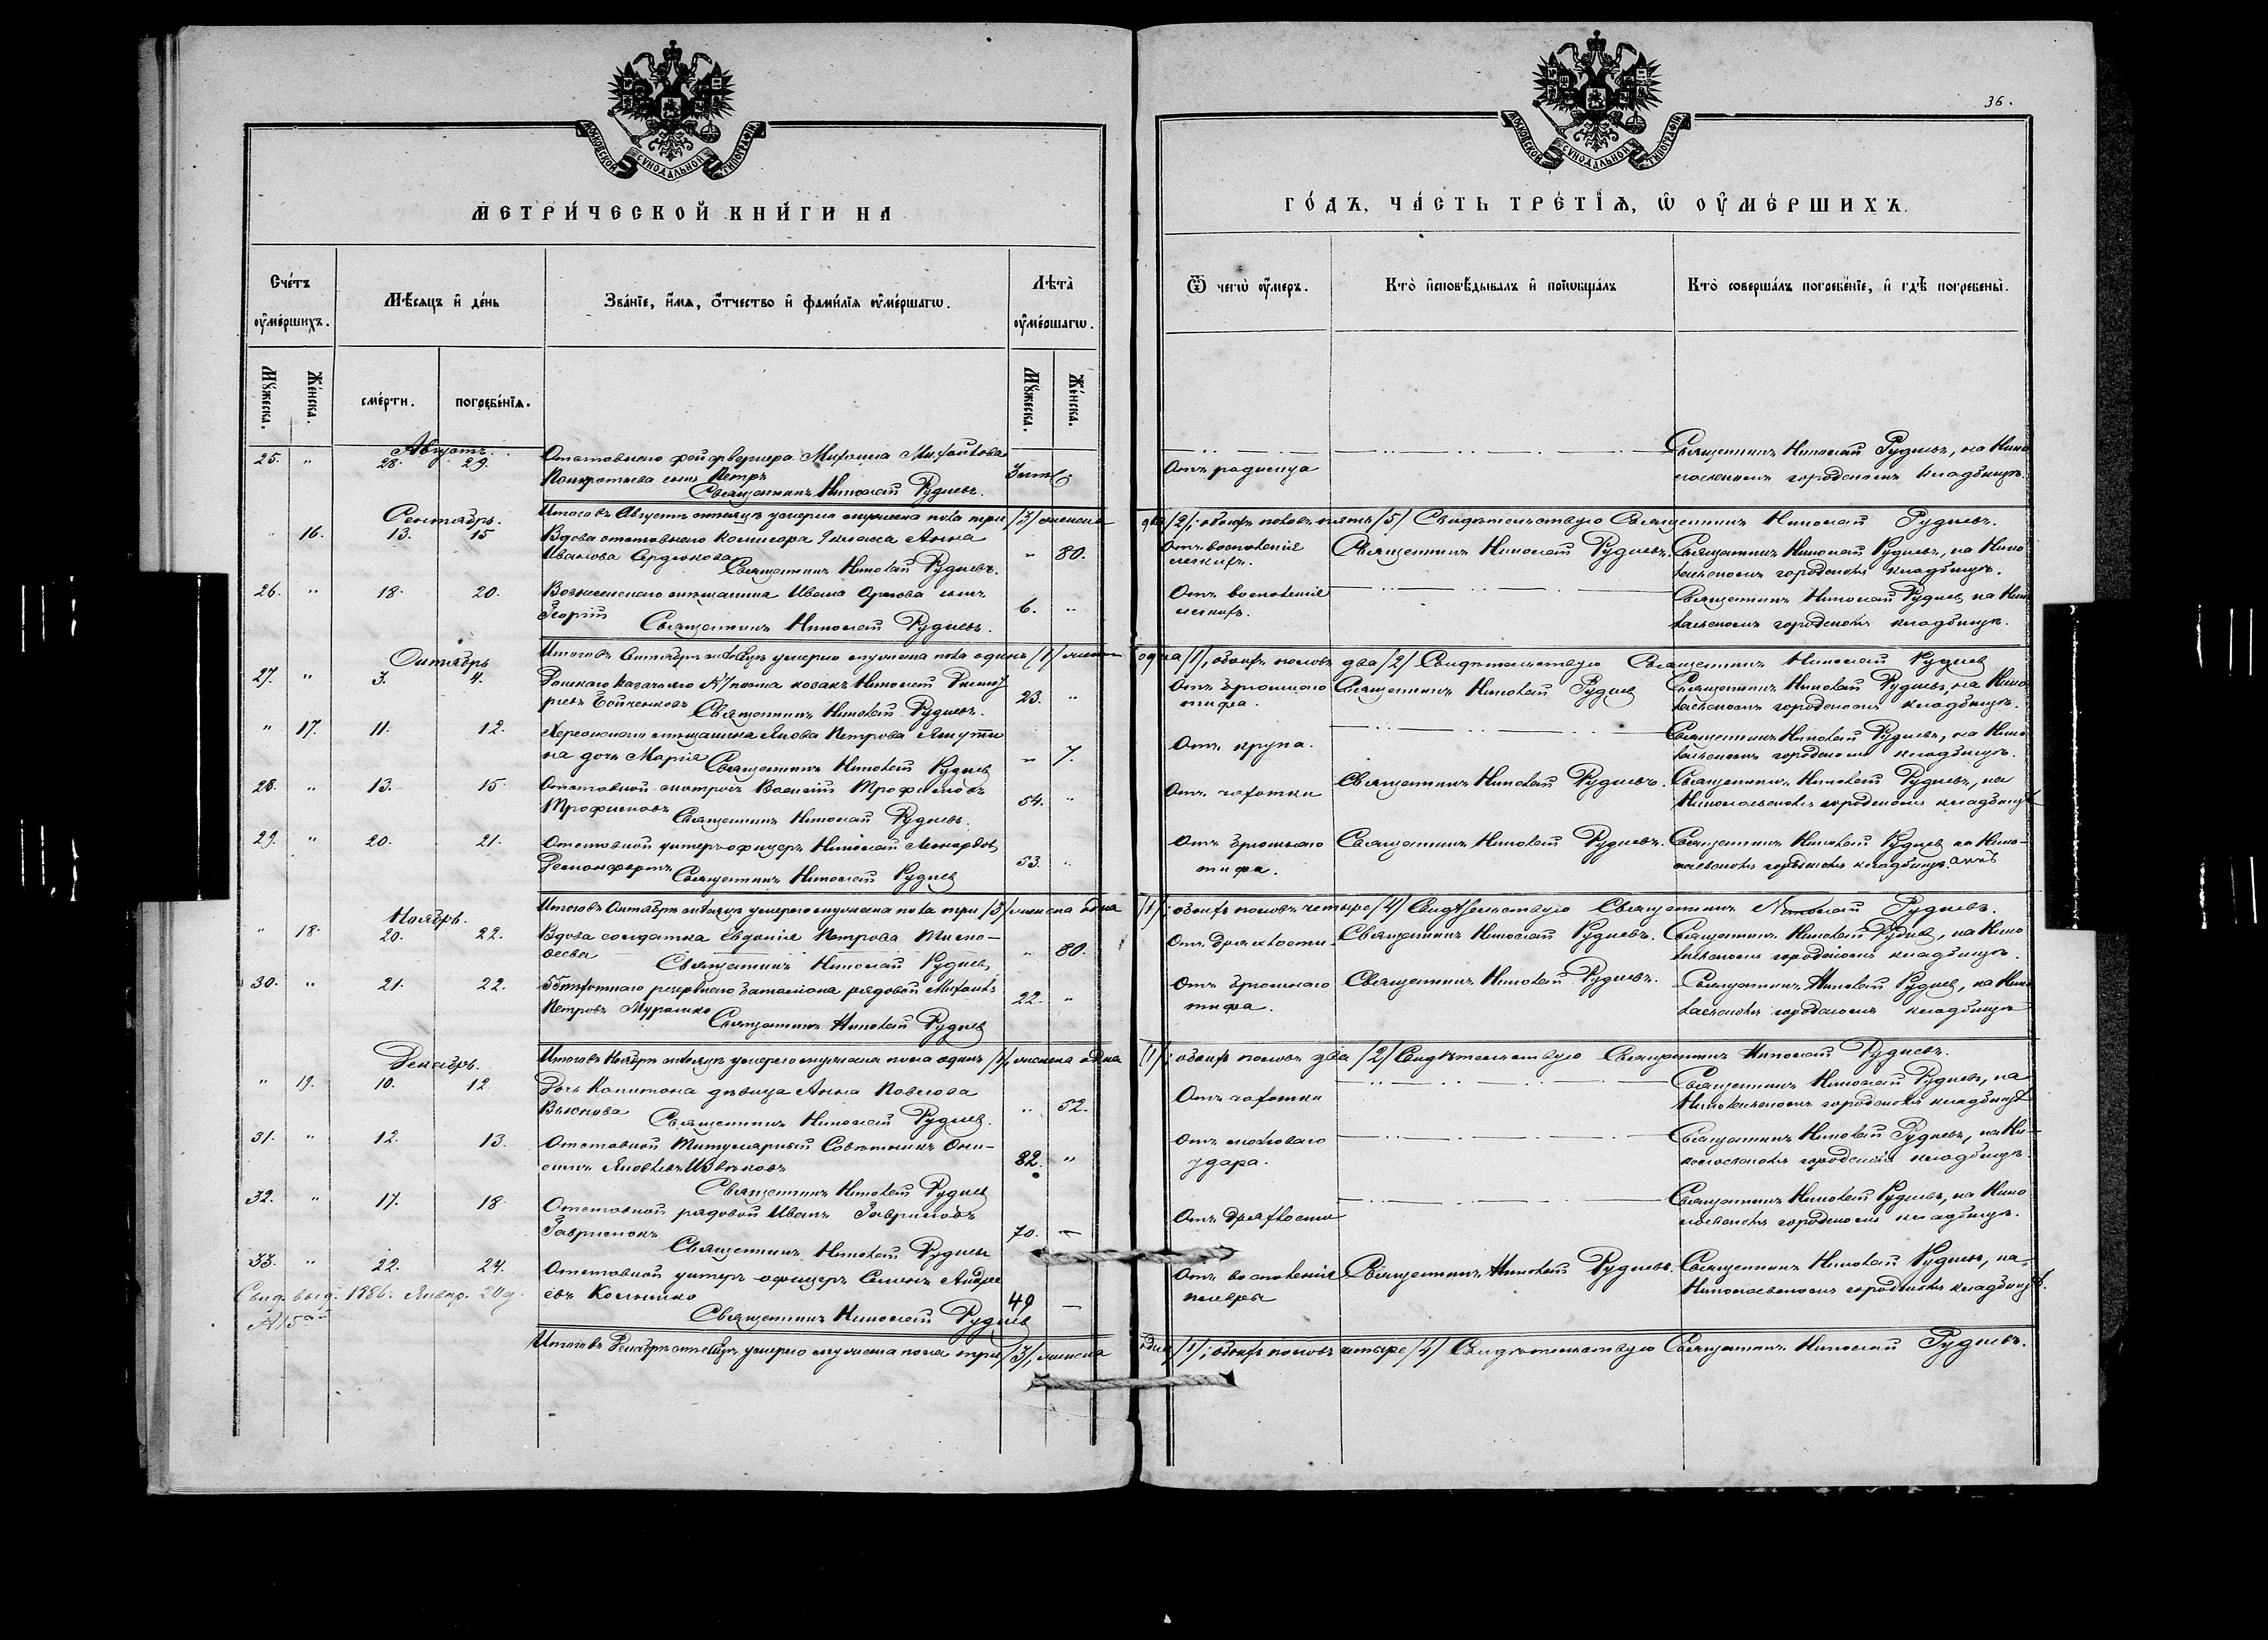 МОСКОВСКОЙ СѴНОДАЛЬНОЙ ТИПОГРАФІИ
МЕТРИ́ЧЕСКОЙ КНИ́ГИ НА
Сче́тъ ᲂу҆ме́ршихъ.
Мѣ́сѧцъ и҆ де́нь
Зва́нїе, и҆́мѧ, ѻ҆́тчество и҆ фами́лїѧ ᲂу҆ме́ршагѡ.
Лѣ́та ᲂу҆ме́ршагѡ.
Мꙋ́жеска. Же́нска.
сме́рти. погребе́нїѧ.
Мꙋ́жеска. Же́нска.
Августъ.
25. " 28. 29. Отставнаго фейерверкера Михаила Михайлова
Панкратьева сынъ Петръ
Священникъ Николай Рудневъ.
Итого въ Августѣ мѣсяцѣ умерло мужеска пола три /3/ женска
Сентябрь.
" 16. 13. 15 Вдова отставнаго Анна
Иванова Сердюкова " 80.
Священникъ Николай Рудневъ.
26. " 18. 20. Вознесенскаго мѣщанина Ивана Орлова сынъ
Георгій 6. "
Священникъ Николай Рудневъ.
Итого въ Сентябрѣ мѣсяцѣ умерло мужеска пола одинъ /1/ женска
Октябрь
27. " 3. 4. Донскаго казачьяго №7 полка козакъ Николай
23. "
Священникъ Николай Рудневъ.
" 17. 11. 12. Херсонскаго мѣщанина Якова Петрова
на дочь Марія " 7.
Священникъ Николай Руднев
28. " 13. 15. Отставной Василій Трофимовъ
Трофимовъ 54. "
Священникъ Николай Рудневъ.
29. " 20. 21. Отставной унтеръ-офицеръ Николай
53. "
Священникъ Николай Руднев
Итого въ Октябрѣ мѣсяцѣ умерло мужеска пола три /3/ женска одна
Ноябрь.
" 18. 20. 22. Вдова солдатка Евдокія Петрова
" 80.
Священникъ Николай Руднев
30. " 21. 22. 55 пѣхотнаго резервнаго баталіона рядовой Михаилъ
Петровъ Мурашко 22. "
Священникъ Николай Руднев
Итого въ Ноябрѣ мѣсяцѣ умерло мужеска пола одинъ /1/, женска одна
Декабрь.
" 19. 10. 12 Дочь Капитана дѣвица Анна Павлова
Вьюнова " 52.
Священникъ Николай Руднев.
31. " 12. 13. Отставной Титулярный Совѣтникъ
Яковлевъ 82. "
Священникъ Николай Руднев
32. " 17. 18. Отставной рядовой Иванъ Гавриловъ
70. –
Священникъ Николай Рудневъ
33. " 22. 24. Отставной унтеръ офицеръ Семенъ Андре
евъ 49 –
Священникъ Николай Руднев
Свид. выд. 1886 г. Январ. 20 д.
№15
Итого въ Декабрѣ мѣсяцѣ умерло мужеска пола три /3/, женска
36.
МОСКОВСКОЙ СѴНОДАЛЬНОЙ ТИПОГРАФІИ
ГО́ДЪ, ЧА́СТЬ ТРЕ́ТЇѦ, Ѡ҆ ОУ҆МЕ́РШИХЪ.
Ѿ чегѡ̀ ᲂу҆́меръ.
Кто̀ и҆сповѣ́дывалъ и҆ прїѡбща́лъ
Кто̀ соверша́лъ погребе́нїе, и҆ гдѣ̀ погребены̀.
Священникъ Николай Рудневъ, на Нико
лаевскомъ городскомъ кладбищѣ.
два /2/; обоихъ половъ пять /5/ Свидѣтельствую Священникъ Николай Рудневъ.
Отъ воспаленія Священникъ Николай Рудневъ. Священникъ Николай Рудневъ, на Нико
легкихъ. лаевскомъ городскомъ кладбищѣ.
Отъ воспаленія Священникъ Николай Руднев, на Нико
легкихъ. лаевскомъ городскомъ кладбищѣ.
одна /1/, обоихъ половъ два /2/ Свидѣтельствую Священникъ Николай Руднев
Отъ брюшнаго Священникъ Николай Руднев Священникъ Николай Рудневъ, на Нико
тифа. лаевскомъ городскомъ кладбищѣ.
Отъ крупа. Священникъ Николай Рудневъ, на Нико
лаевскомъ городскомъ кладбищѣ.
Отъ чахотки Священникъ Николай Рудневъ. Священникъ Николай Рудневъ, на
Николаевскомъ городскомъ кладбищѣ
Отъ брюшнаго Священникъ Николай Рудневъ. Священникъ Николай Руднев на Нико-
тифа. лаевскомъ городскомъ кладбищѣ
/1/; обоихъ половъ четыре /4/ Свидѣтельствую Священникъ Николай Рудневъ.
Отъ дряхлости Священникъ Николай Рудневъ. Священникъ Николай Руднев, на Нико
лаевскомъ городскомъ кладбищѣ.
Отъ брюшнаго Священникъ Николай Рудневъ. Священникъ Николай Руднев, на Нико
тифа. лаевскомъ городскомъ кладбищѣ
/1/; обоихъ половъ два /2/ Свидѣтельствую Священникъ Николай Рудневъ.
Отъ чахотки Священникъ Николай Рудневъ, на
Николаевскомъ городскомъ кладбищѣ
Отъ Священникъ Николай Рудневъ, на Ни-
удара. колаевскомъ городскомъ кладбищѣ.
Отъ дряхлости Священникъ Николай Рудневъ, на Нико
лаевскомъ городскомъ кладбищѣ.
Отъ воспаленія Священникъ Николай Рудневъ. Священникъ Николай Рудневъ, на
плевры Николаевскомъ городскомъ кладбищѣ.
одна /1/; обоихъ половъ четыре /4/ Свидѣтельствую Священникъ Николай Рудневъ.